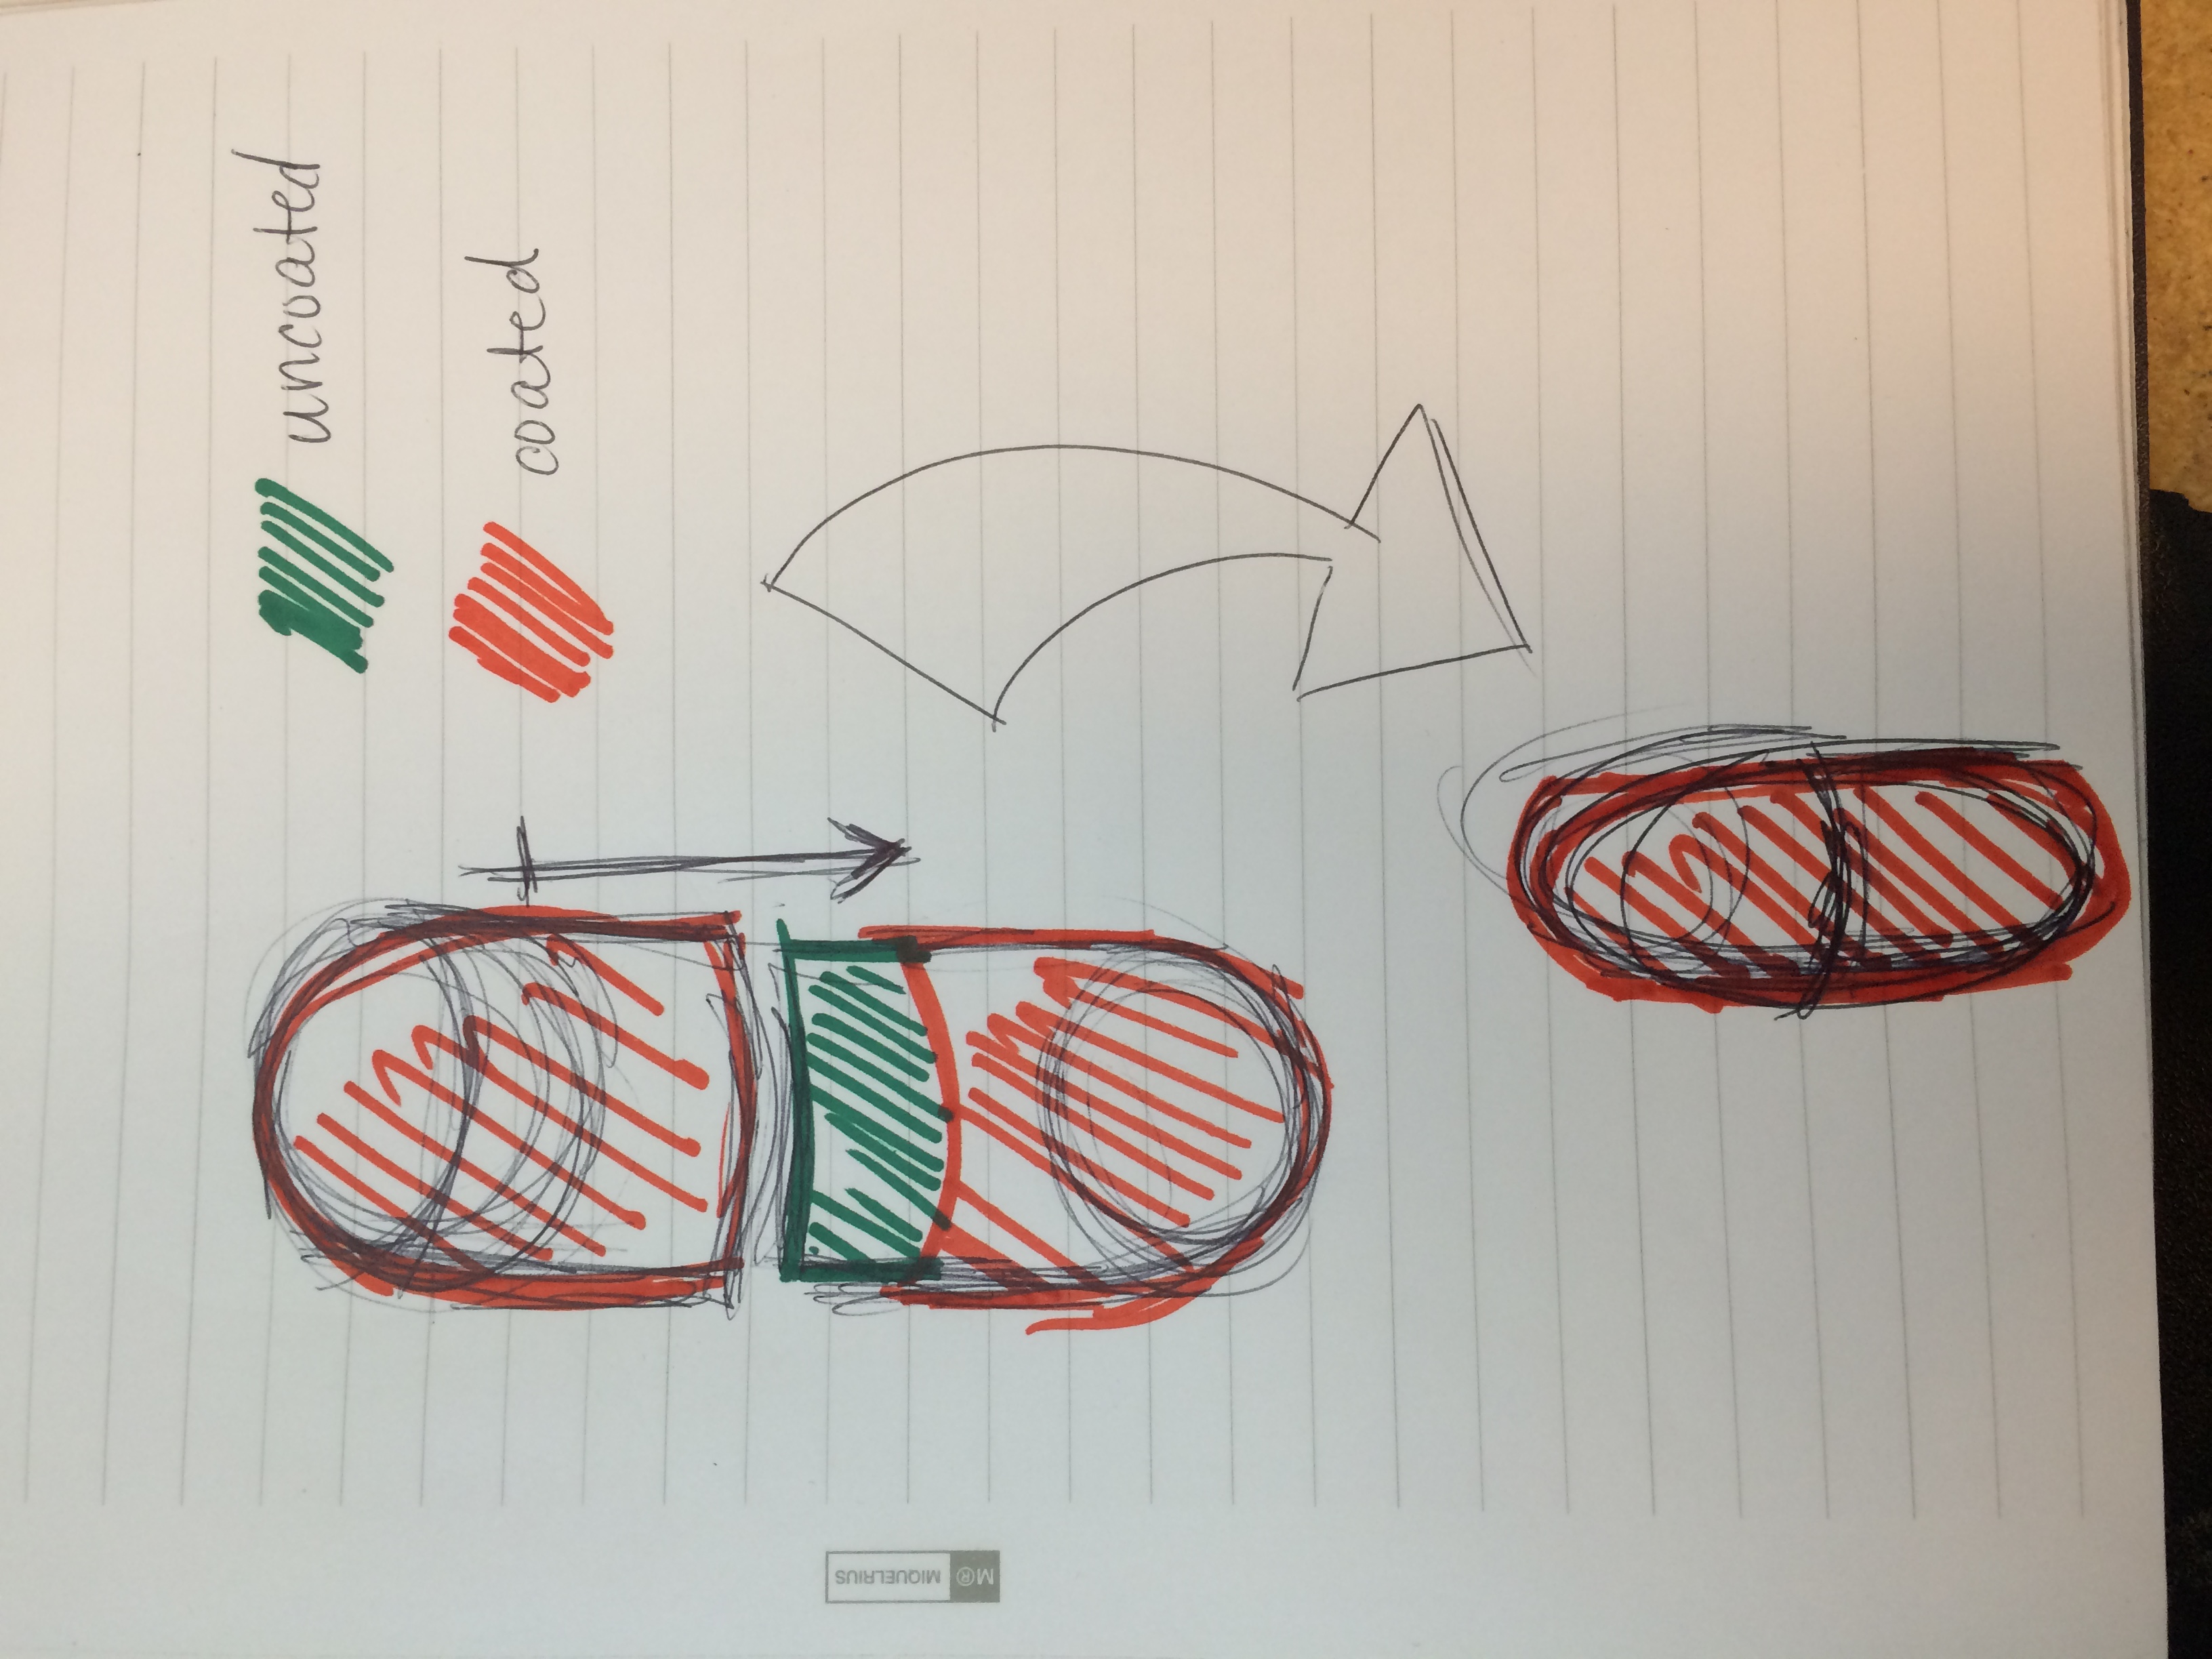 uncoated
coated
M® MIQUELRIUS